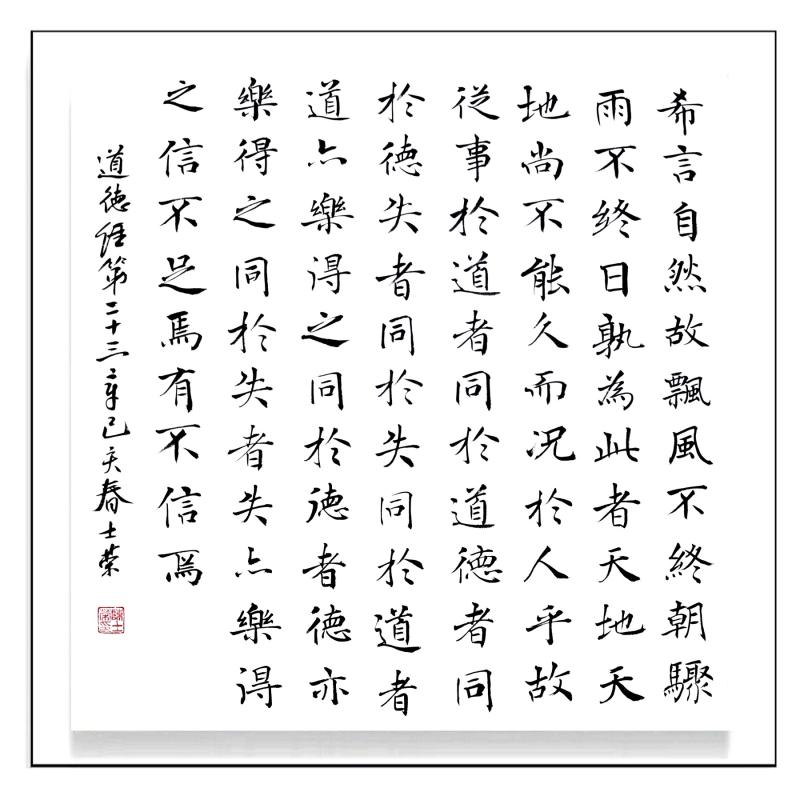 希言自然故飄風不終朝驟
雨不終日孰為此者天地天
地尚不能久而况於人乎故
從事於道者同於道德者同
於德失者同於失同於道者
道亦樂得之同於德者德亦
樂得之同於失者失亦樂得
之信不足焉有不信焉
道德經第二十三章己亥春士榮